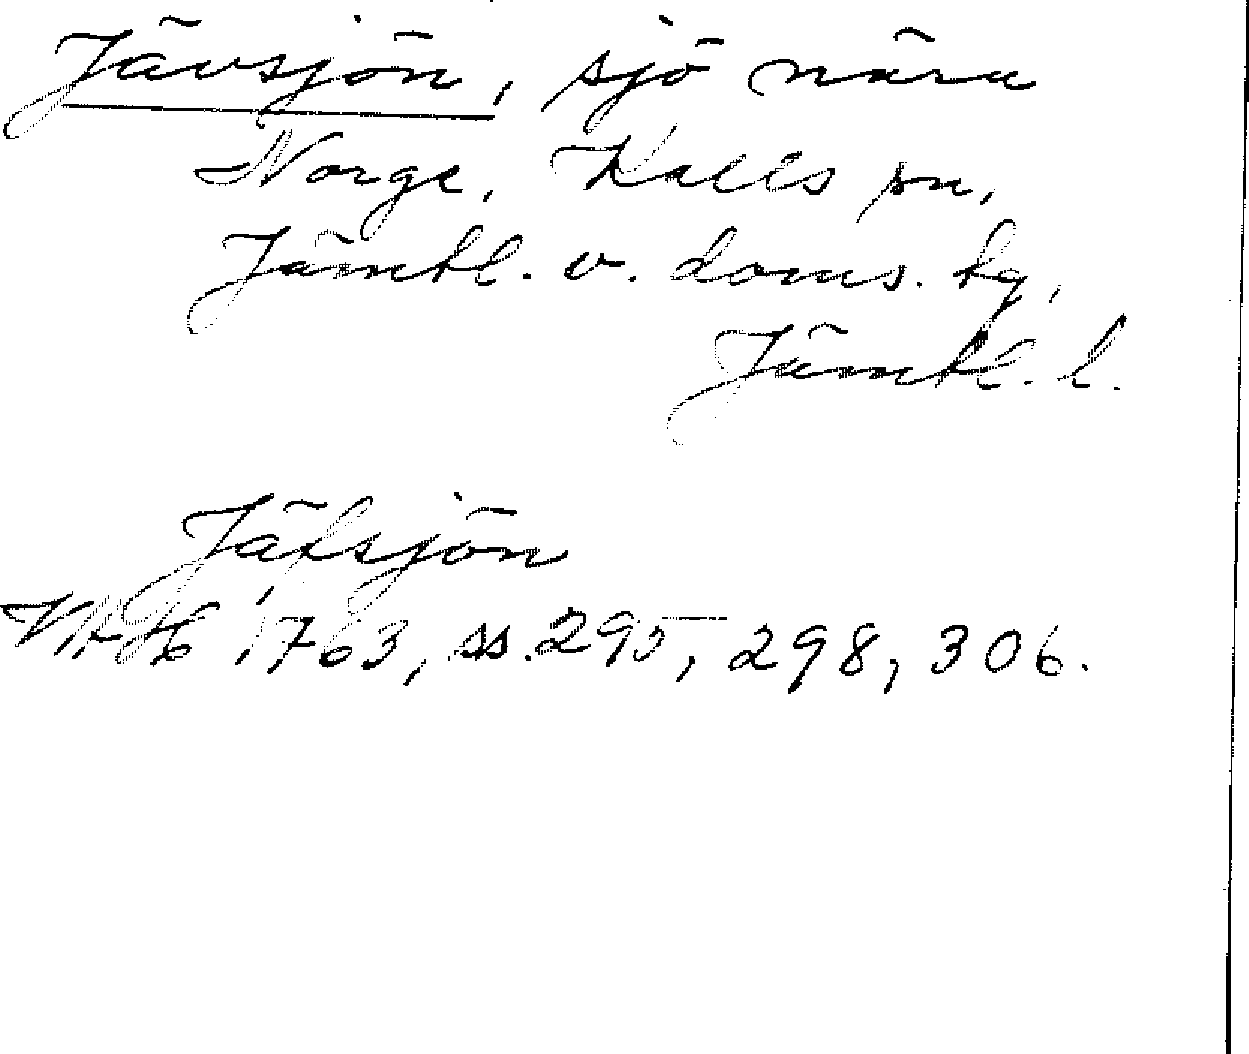 Jävsjön, sjö nära
Norge, Kalls sn,
Jämtl. v. doms. tg,
Jämtl. l.
Jäfsjön
VAH 1763, ss. 295, 298, 306.